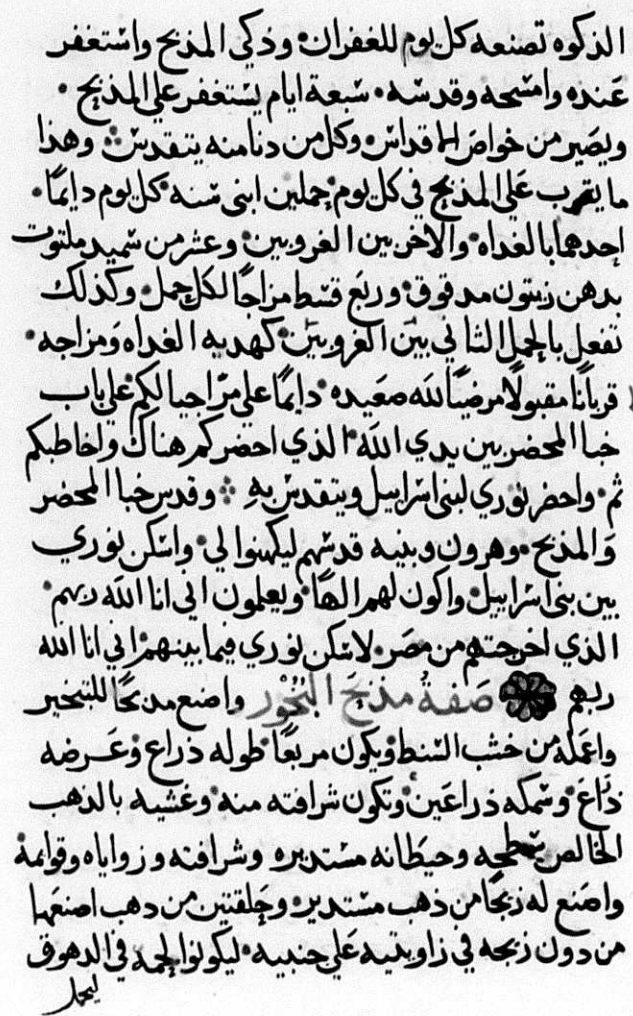 الذكوه تصنعه كل يوم للغفران وذكي المذبح واستغفر
عنده وامسحه وقدسه سبعة ايام يستغفر علي المذبح
ويصير من خواص الاقداس وكل من دنا منه يتقدس وهذا
ما يقرب علي المذبح في كل يوم حملين ابني سنه كل يوم دايمًا
احدهما بالغداه والاخر بين الغروبين وعشر من سميد ملتوت
بدهن زيتون مدقوق وربع قسط مزاجًا لكل حمل وكذلك
تفعل بالحمل الثاني بين الغروبين كهديه الغداه ومزاجه
قربانًا مقبولًا مرضيًا لله صعيده دايمًا علي مر اجيالكم علي باب
خبا المحضر بين يدي الله الذي احضركم هناك واخاطبكم
ثم واحضر نوري لبني اسراييل ويتقدس به وقدس خبا المحضر
والمذبح وهرون وبنيه قدسهم ليكهنوا لي واسكن نوري
بين بني اسراييل واكون لهم الهًا ويعلمون اني انا الله ربهم
الذي اخرجتهم من مصر لاسكن نوري فيما بينهم اني انا الله
ربهم صفة مذبح البخور واصنع مذبحًا للتبخير
واعمله من خشب السنط ويكون مربعًا طوله ذراع وعرضه
ذراع وسمكه ذراعين وتكون شرافته منه وغشيه بالذهب
الخالص سطحه وحيطانه مستديره وشرافته وزواياه وقوايمه
واصنع له زيجًا من ذهب مستدير وحلقتين من دهب اصنعها
من دون زيجه في زاويتيه علي جنبيه ليكونوا لجمه في الدهوق
ليحمل